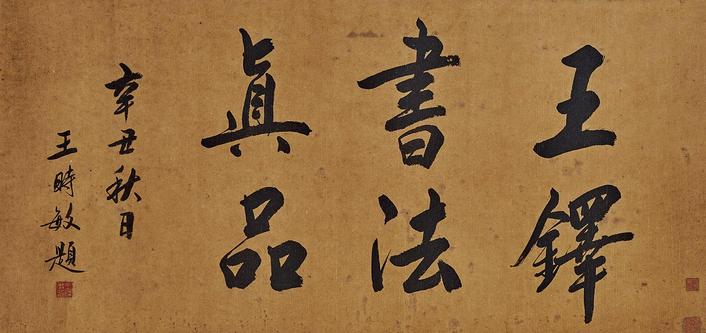 王鐸
書法
眞品
辛丑秋日
王時敏題